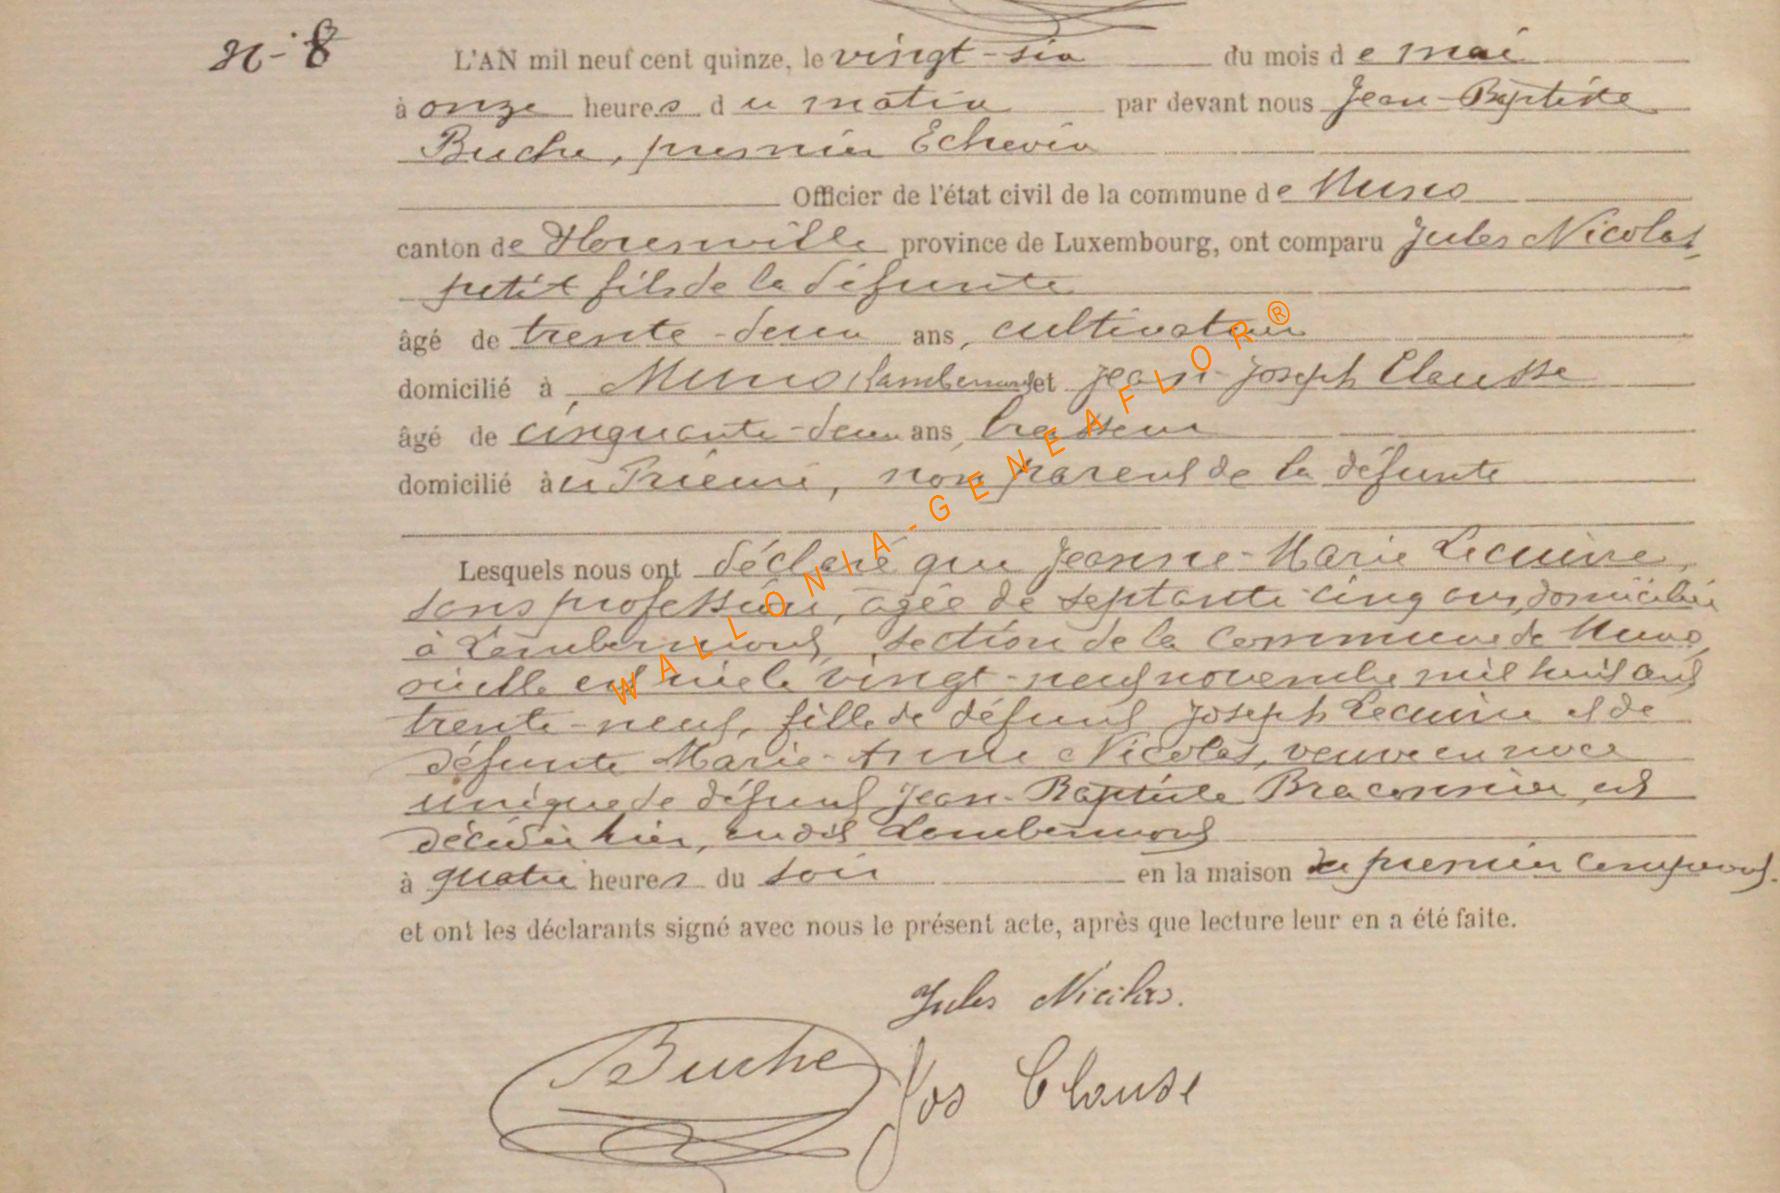 N° 8
L'AN mil neuf cent quinze, le vingt-six du mois de mai
à onze heures du matin par devant nous Jean-Baptiste
Buche, premier Echevin
Officier de l'état civil de la commune de Muno
canton de Florenville province de Luxembourg, ont comparu Jules Nicolas,
petit fils de la défunte
âgé de trente-deux ans, cultivateur
domicilié à Muno (Lambermont) et Jean-Joseph Clausse
âgé de cinquante-deux ans, brasseur
domicilié au Prieuré, non parent de la défunte
Lesquels nous ont déclaré que Jeanne-Marie Lecuivre,
sans profession, âgée de septante cinq ans, domiciliée
à Lambermont, section de la commune de Muno,
où elle est née le vingt-neuf novembre mil huit cent
trente-neuf, fille de défunt Joseph Lecuivre et de
défunte Marie-Anne Nicolas, veuve en noce
unique de défunt Jean-Baptiste Braconnier, est
décédée hier, audit Lambermont
à quatre heures du soir en la maison du premier comparant.
et ont les déclarants signé avec nous le présent acte, après que lecture leur en a été faite.
Jules Nicolas.
Buche
Jos Clausse
WALLONIA-GENEAFLOR®